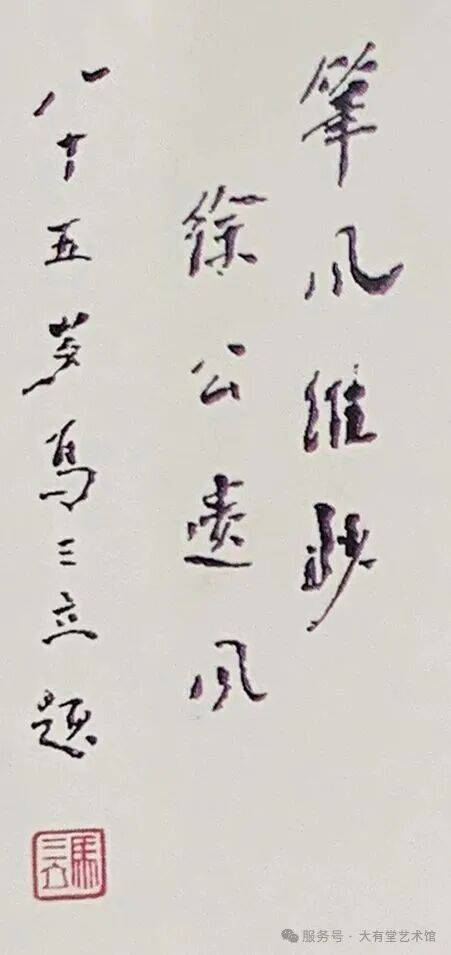 筆风维妙
徐公遗风
八十五岁马三立题
馬三立
服务号 · 大有堂艺术馆